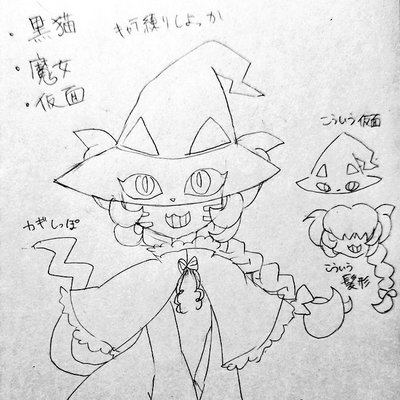 ・黒猫
キャラ練りしよっか
・魔女
・仮面
こういう仮面
かぎしっぽ
こういう
髪形